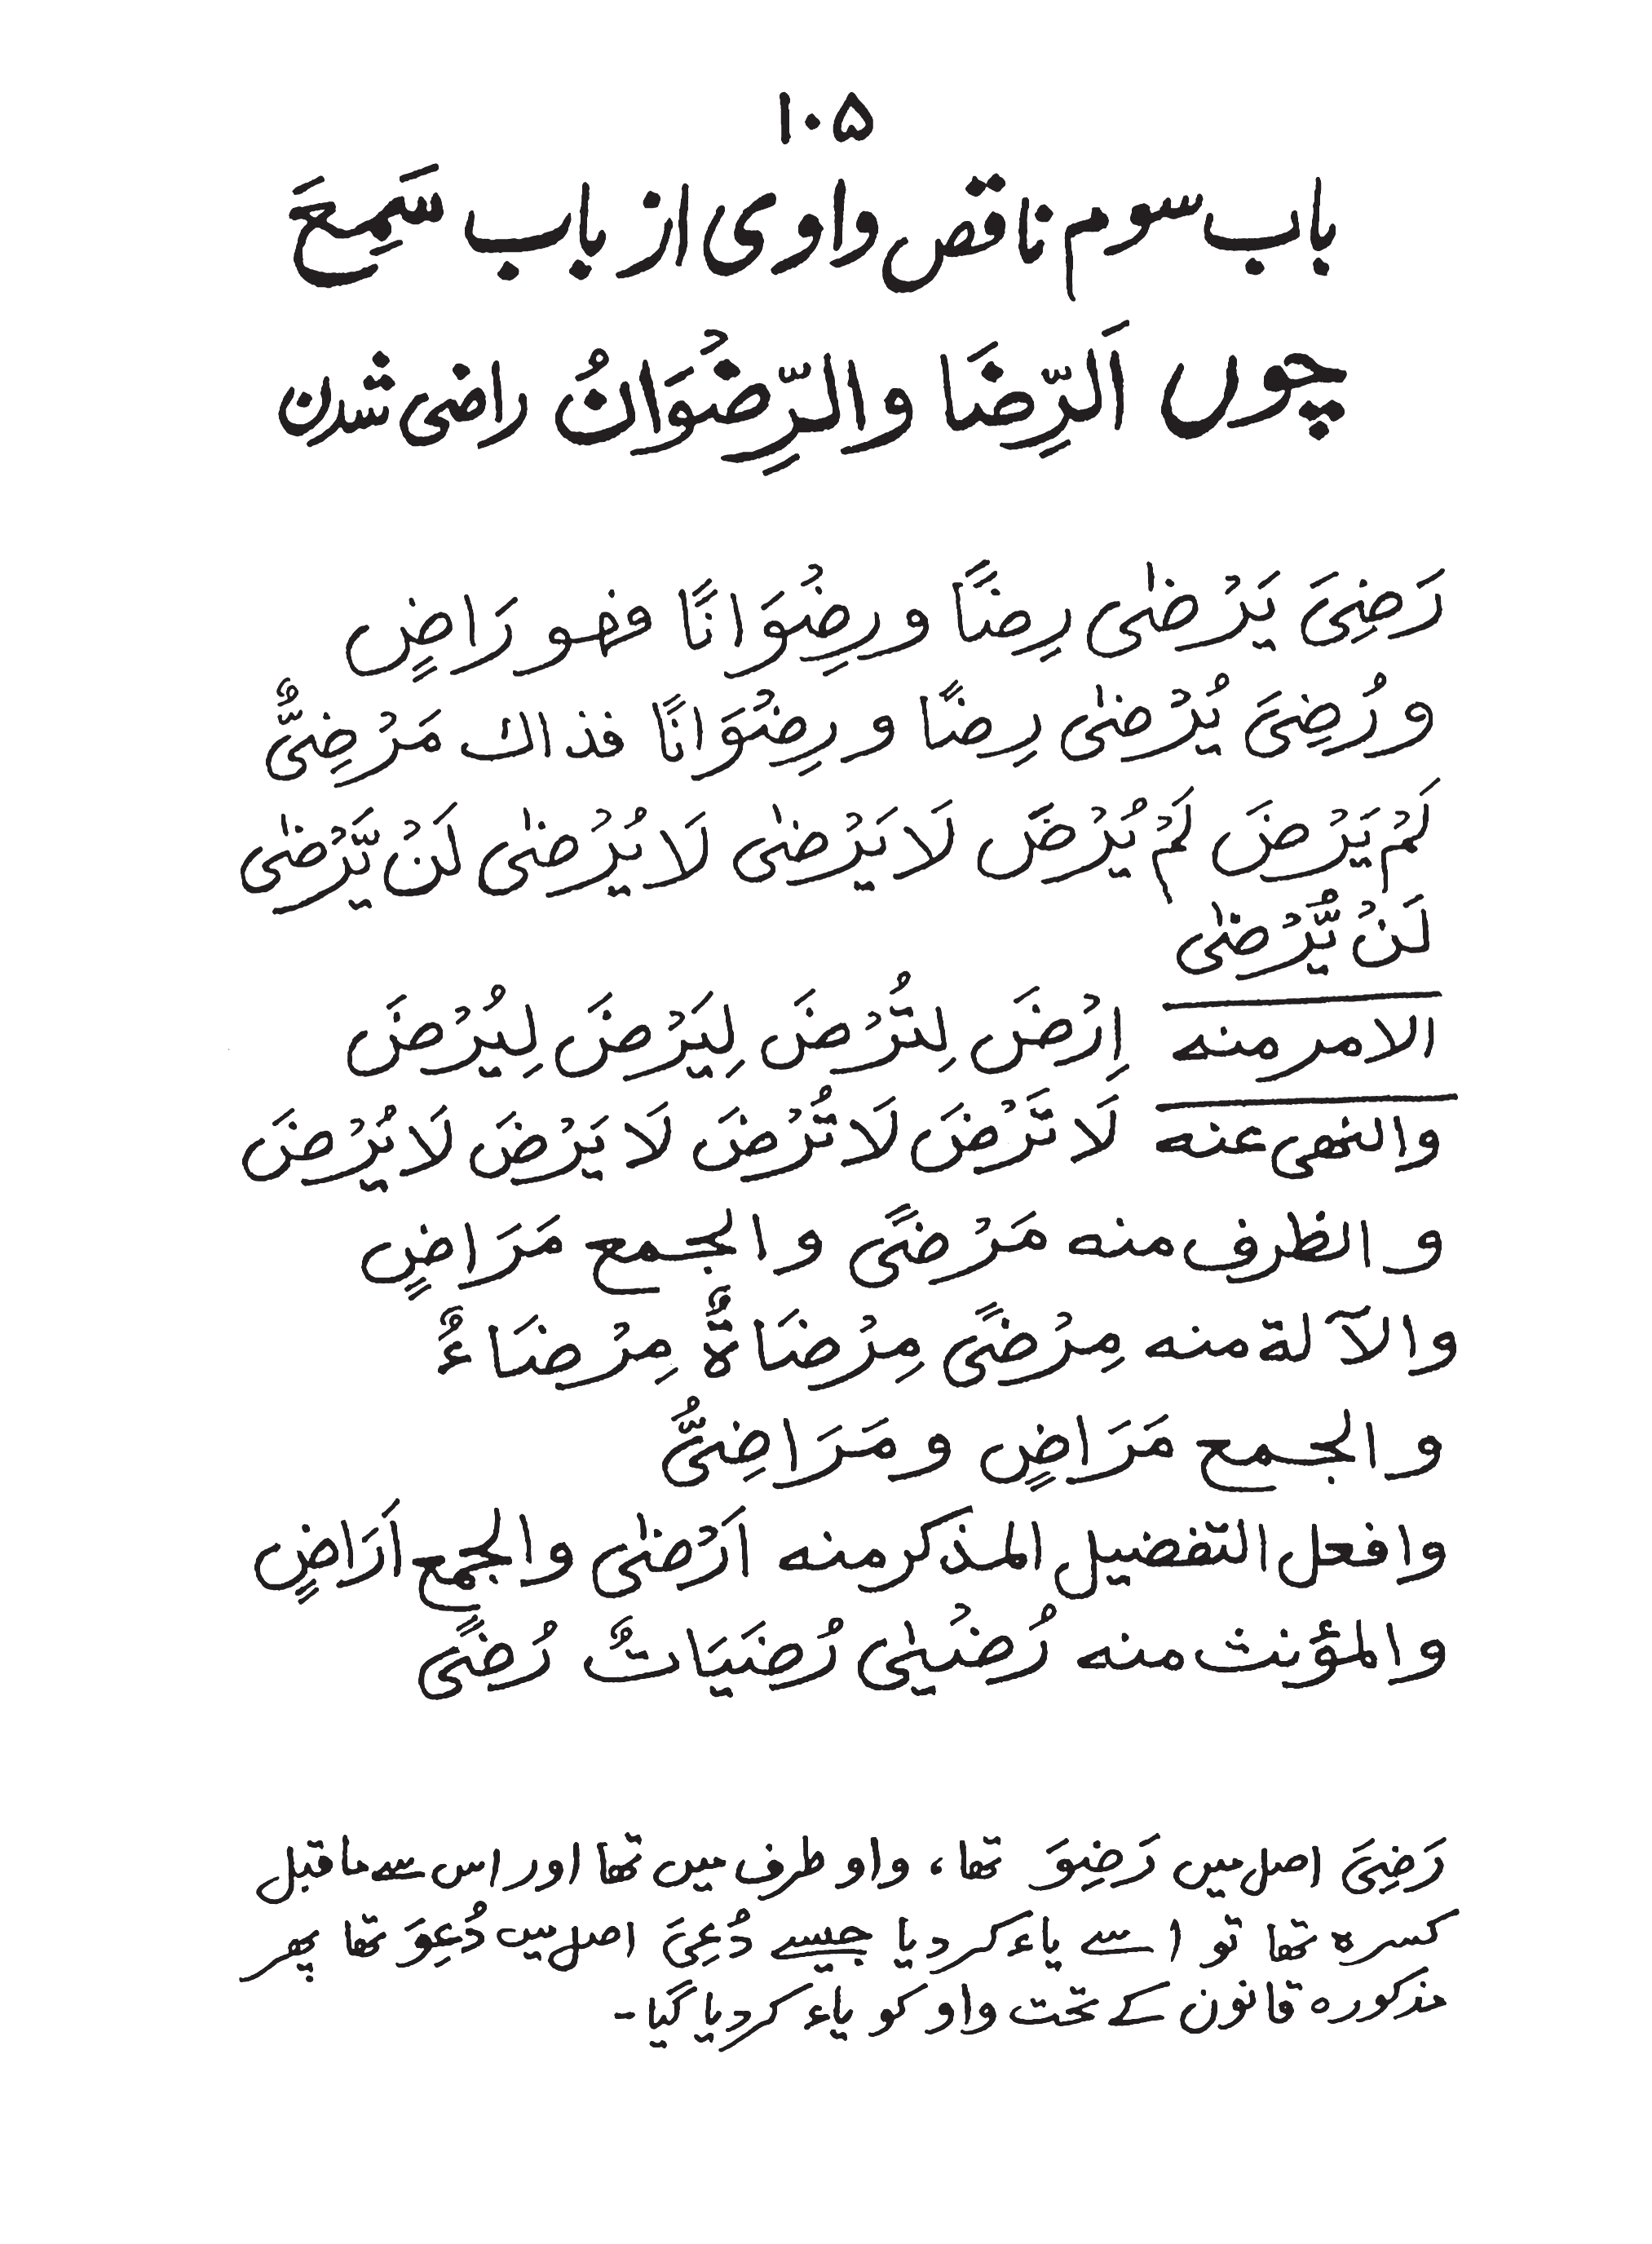 ۱۰۵
باب سوم ناقص واوی از باب سَمِعَ
چوں اَلرِّضَا والرِّضْوَانُ راضی شدن
رَضِیَ یَرْضٰی رِضًا ورِضْوَانًا فهو رَاضٍ
ورُضِیَ یُرْضٰی رِضًا ورِضْوَانًا فذاك مَرْضِیٌّ
لَمْ یَرْضَ لَمْ یُرْضَ لَا یَرْضٰی لَا یُرْضٰی لَنْ یَّرْضٰی
لَنْ یُّرْضٰی
الامر منه اِرْضَ لِتُرْضَ لِیَرْضَ لِیُرْضَ
والنهی عنه لَا تَرْضَ لَا تُرْضَ لَا یَرْضَ لَا یُرْضَ
و الظرف منه مَرْضًی والجمع مَرَاضٍ
والآلة منه مِرْضًی مِرْضَاةٌ مِرْضَاءٌ
و الجمع مَرَاضٍ ومَرَاضِیُّ
وافعل التفضیل المذکر منه اَرْضٰی والجمع اَرَاضٍ
والمؤنث منه رُضْیٰی رُضَیَاتٌ رُضًی
رَضِیَ اصل میں رَضِوَ تھا، واو طرف میں تھا اور اس سے ماقبل
کسرہ تھا تو اسے یاء کردیا جیسے دُعِیَ اصل میں دُعِوَ تھا پھر
مذکورہ قانون کے تحت واو کو یاء کردیا گیا۔